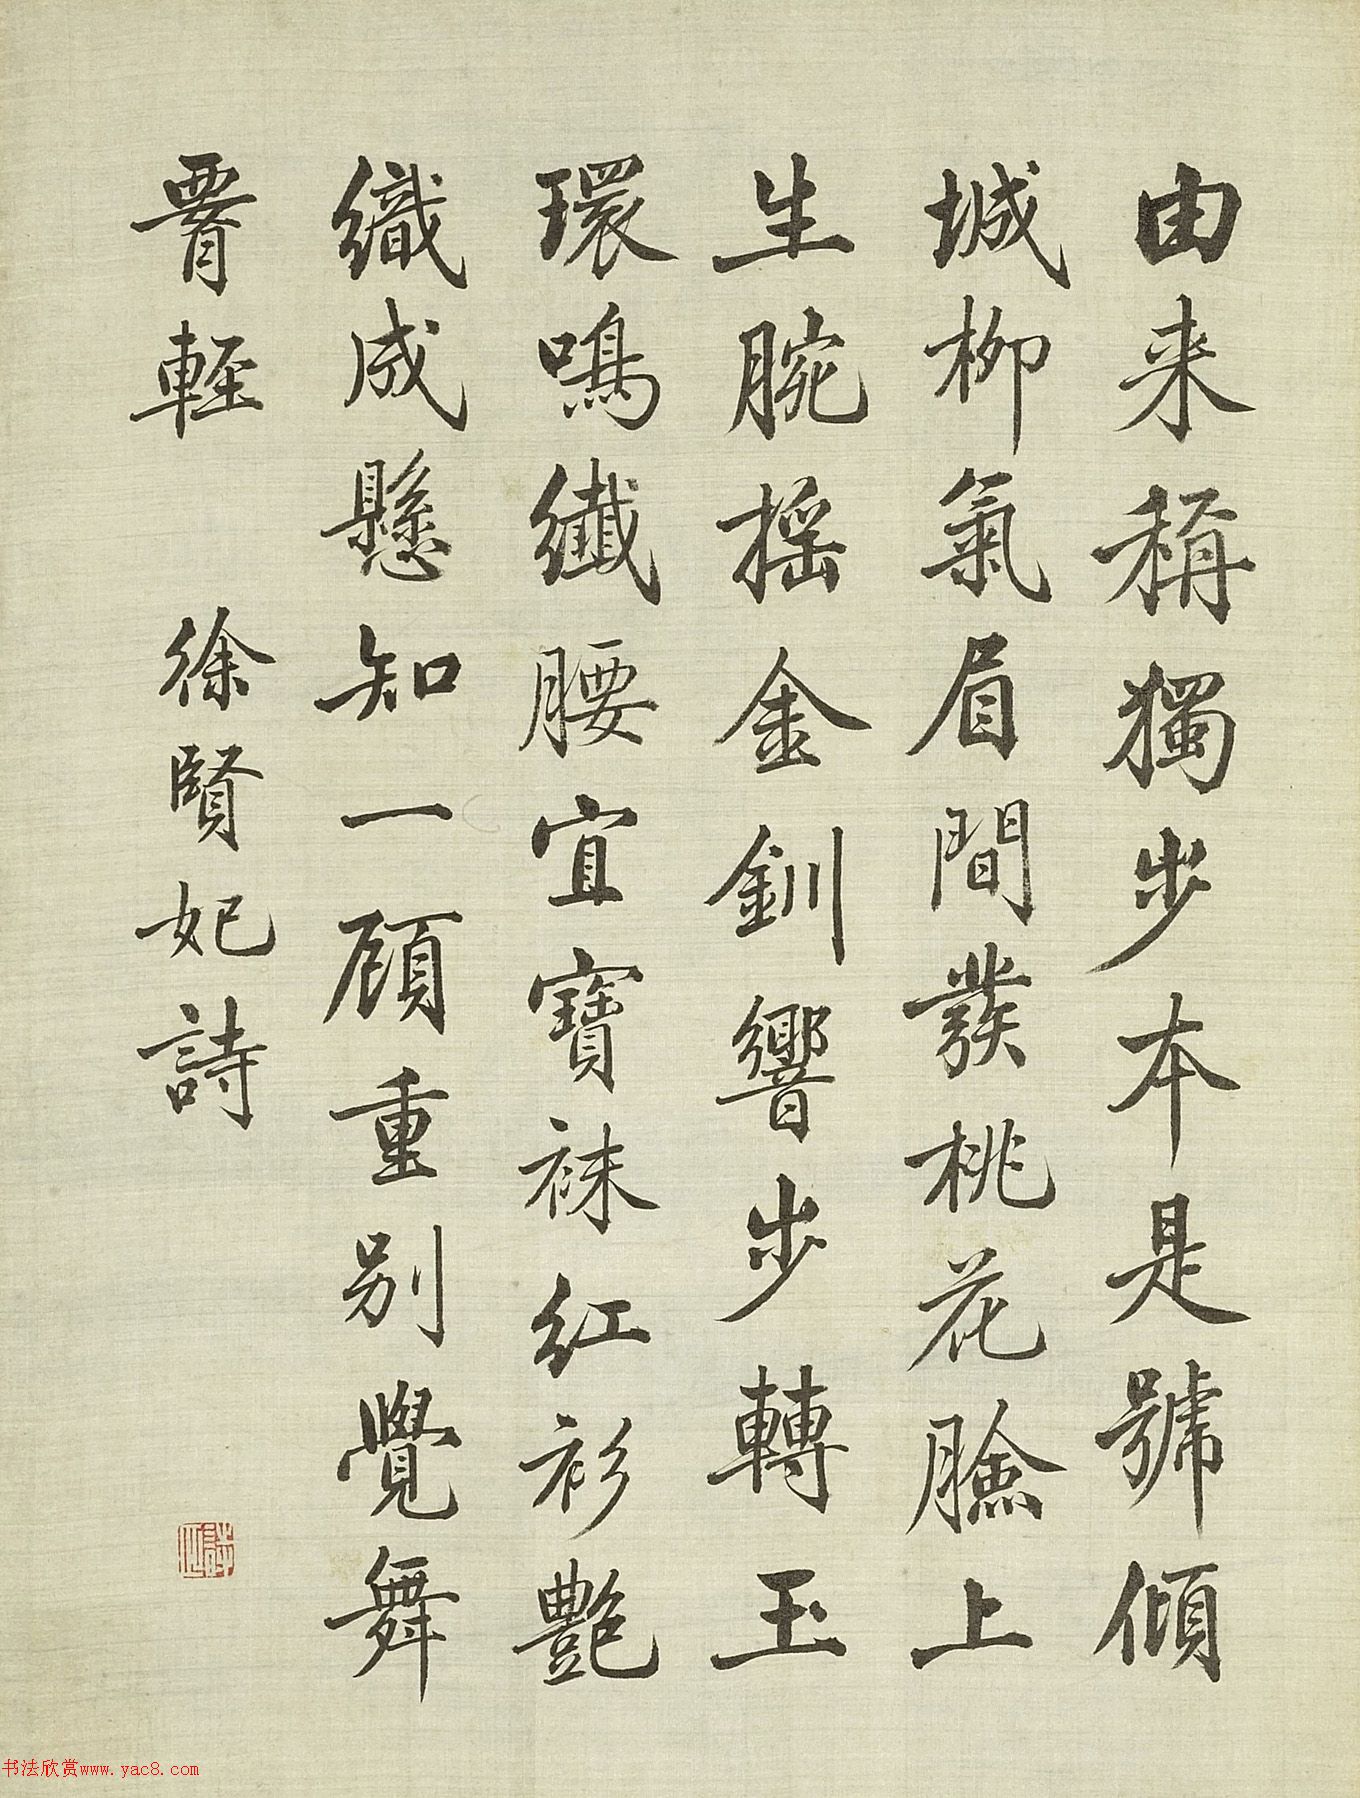 由来稱獨步本是號傾
城柳氣眉間發桃花臉上
生腕摇金釧響步轉玉
環鳴纖腰宜寶袜红衫艷
織成懸知一顧重别覺舞
署輕 徐賢妃詩
书法欣赏www.yac8.com